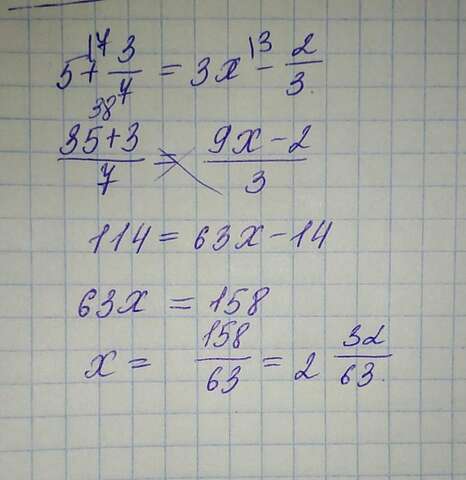 5 + 3/7 = 3x - 2/3
(35+3)/7 = (9x-2)/3
114 = 63x - 14
63x = 158
x = 158/63 = 2 32/63